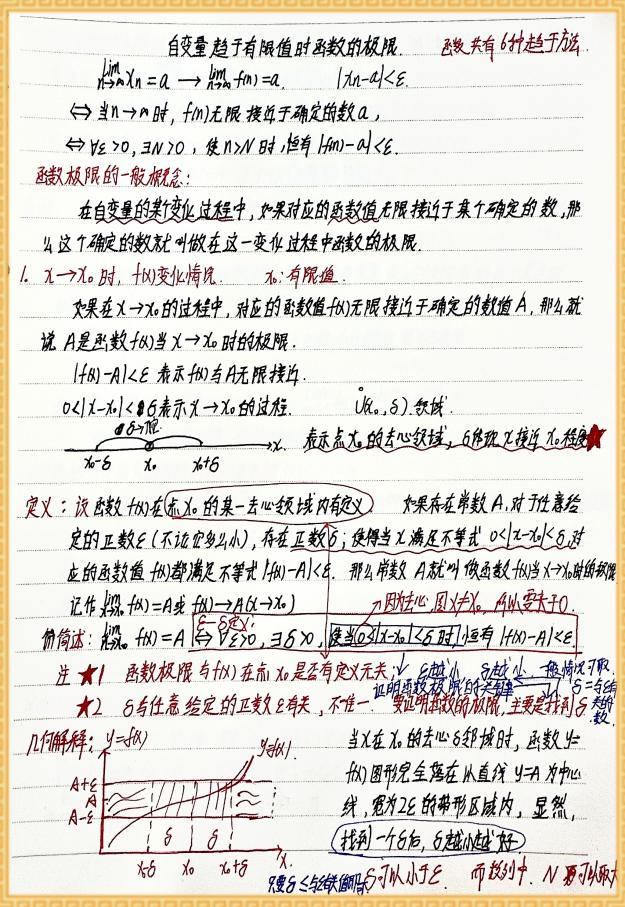 自变量趋于有限值时函数的极限. 函数共有6种趋于方法.
lim n→∞ xn=a → lim n→∞ f(n)=a. |xn-a|<ε.
⇔ 当n→∞时, f(n)无限接近于确定的数a,
⇔ ∀ε>0, ∃N>0, 使n>N时,恒有|f(n)-a|<ε.
函数极限的一般概念:
在自变量的某个变化过程中, 如果对应的函数值无限接近于某个确定的数,那
么这个确定的数就叫做在这一变化过程中函数的极限.
1. x→x₀时, f(x)变化情况. x₀:有限值.
如果在x→x₀的过程中, 对应的函数值f(x)无限接近于确定的数值A, 那么就
说A是函数f(x)当x→x₀时的极限.
|f(x)-A|<ε 表示f(x)与A无限接近.
0<|x-x₀|<δ表示x→x₀的过程. Ů(x₀,δ).领域.
x. 表示点x₀的去心领域, δ体现x接近x₀程度★
x₀-δ x₀ x₀+δ
定义: 设函数f(x)在点x₀的某一去心领域内有定义 如果存在常数A,对于任意给
定的正数ε(不论它多么小), 存在正数δ; 使得当x满足不等式0<|x-x₀|<δ,对
应的函数值f(x)都满足不等式|f(x)-A|<ε. 那么常数A就叫做函数f(x)当x→x₀时的极限
记作 lim x→x₀ f(x)=A或f(x)→A(x→x₀) 因为去心 因x≠x₀, 所以要大于0.
ε-δ定义:
简述: lim x→x₀ f(x)=A ⇔ ∀ε>0, ∃δ>0, 使当0<|x-x₀|<δ时,恒有|f(x)-A|<ε
注 ★1 函数极限与f(x)在点x₀是否有定义无关; ε越小 δ越小 一般情况可取
证明函数极限的关键 δ=与ε有关的数
★2 δ与任意给定的正数ε有关, 不唯一. 要证明函数的极限, 主要是找到δ.
几何解释: y=f(x) y=f(x). 当x在x₀的去心δ邻域时, 函数y=
A+ε f(x)图形完全落在以直线y=A为中心
A 线, 宽为2ε的带形区域内, 显然,
A-ε
δ δ 找到一个δ后, δ越小越好
x₀-δ x₀ x₀+δ x.
只要δ≤与ε有关值即可 δ可以小于ε. 而数列中, N 可以取大